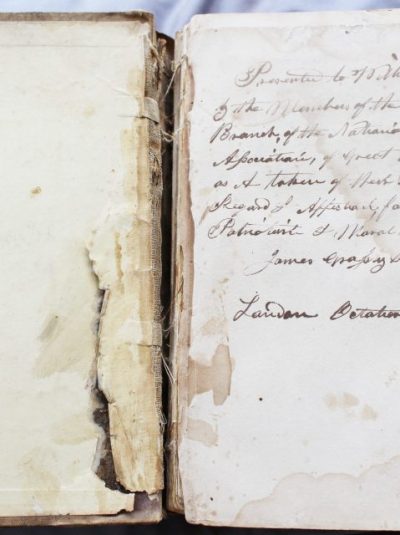 Presented to
the Members of the
Branch, of the National
Association, of Great
as A token of their
Regard & Approval, fo
Patriotism & Moral
James Grassby
London October